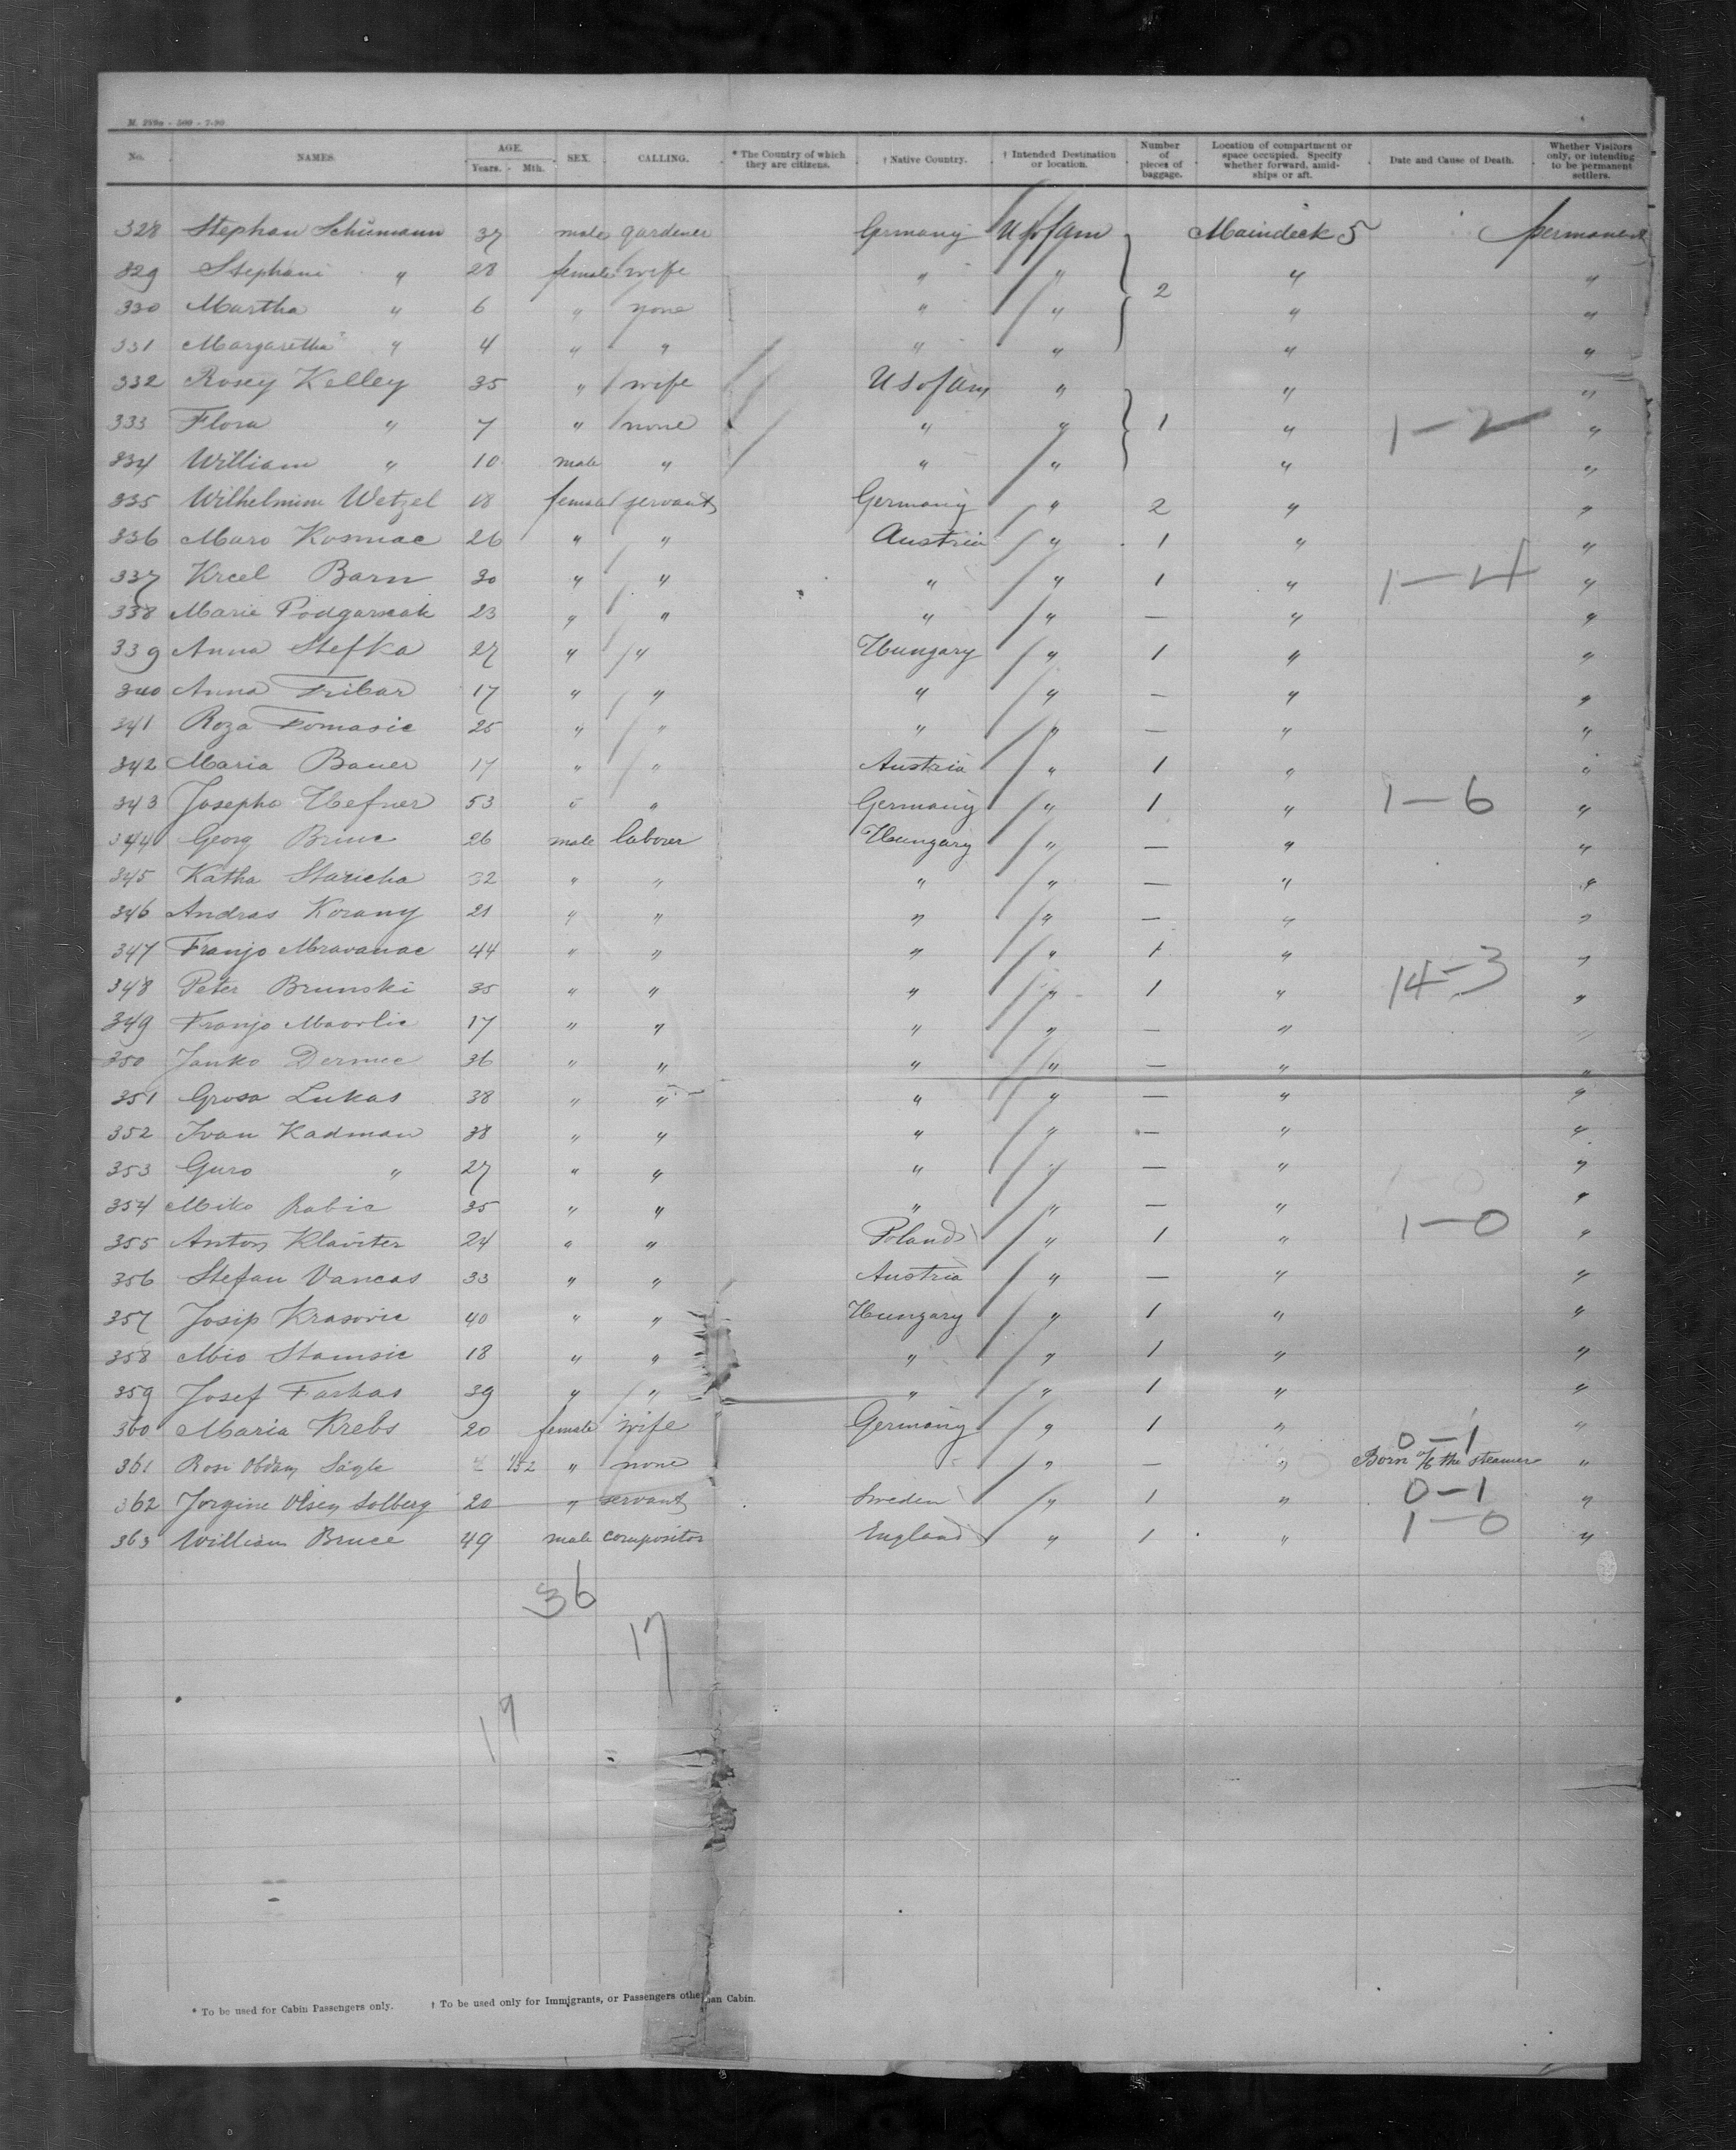 M. 289a - 500 - 7-90
No. NAMES. AGE. Years. Mth. SEX. CALLING. * The Country of which they are citizens. † Native Country. † Intended Destination or location. Number of pieces of baggage. Location of compartment or space occupied. Specify whether forward, amidships or aft. Date and Cause of Death. Whether Visitors only, or intending to be permanent settlers.
328 Stephan Schümann 37 male gardener Germany U S of Am Maindeck 5 permanent
329 Stephani " 28 female wife " " 2 " "
330 Martha " 6 " none " " " "
331 Margaretha " 4 " " " " " "
332 Rosey Kelley 35 " wife U S of Am " " "
333 Flora " 7 " none " " 1 " 1-2 "
334 William " 10 male " " " " "
335 Wilhelmine Wetzel 18 female servant Germany " 2 " "
336 Maro Kosmac 26 " " Austria " 1 " "
337 Krcel Barn 30 " " " " 1 " 1-4 "
338 Marie 23 " " " " — " "
339 Anna Stefka 27 " " Hungary " 1 " "
340 Anna Tribar 17 " " " " — " "
341 Roza Tomasic 25 " " " " — " "
342 Maria Bauer 17 " " Austria " 1 " "
343 Josepha Hefner 53 " " Germany " 1 " 1-6 "
344 Georg 26 male laborer Hungary " — " "
345 Katha Staricha 32 " " " " — " "
346 Andras Korany 21 " " " " — " "
347 Franjo Mravanac 44 " " " " 1 " "
348 Peter Brunski 35 " " " " 1 " 14-3 "
349 Franjo 17 " " " " — " "
350 Janko 36 " " " " — " "
351 Grosa Lukas 38 " " " " — " "
352 Ivan Kadman 38 " " " " — " "
353 Guro " 27 " " " " — " "
354 Miko Rabic 35 " " " " — " "
355 Anton Klaviter 24 " " Poland " 1 " 1-0 "
356 Stefan Vancas 33 " " Austria " — " "
357 Josip Krasovic 40 " " Hungary " 1 " "
358 Mio Stamsic 18 " " " " 1 " "
359 Josef Farkas 39 " " " " 1 " "
360 Maria Krebs 20 female wife Germany " 1 " 0-1 "
361 Rosa Obdam 1/52 " none " — " Born o/b the steamer "
362 Jorgine Olsen Solberg 20 " servant Sweden " 1 " 0-1 "
363 William Bruce 49 male compositor England " 1 " 1-0 "
36
17
19
* To be used for Cabin Passengers only. † To be used only for Immigrants, or Passengers other than Cabin.